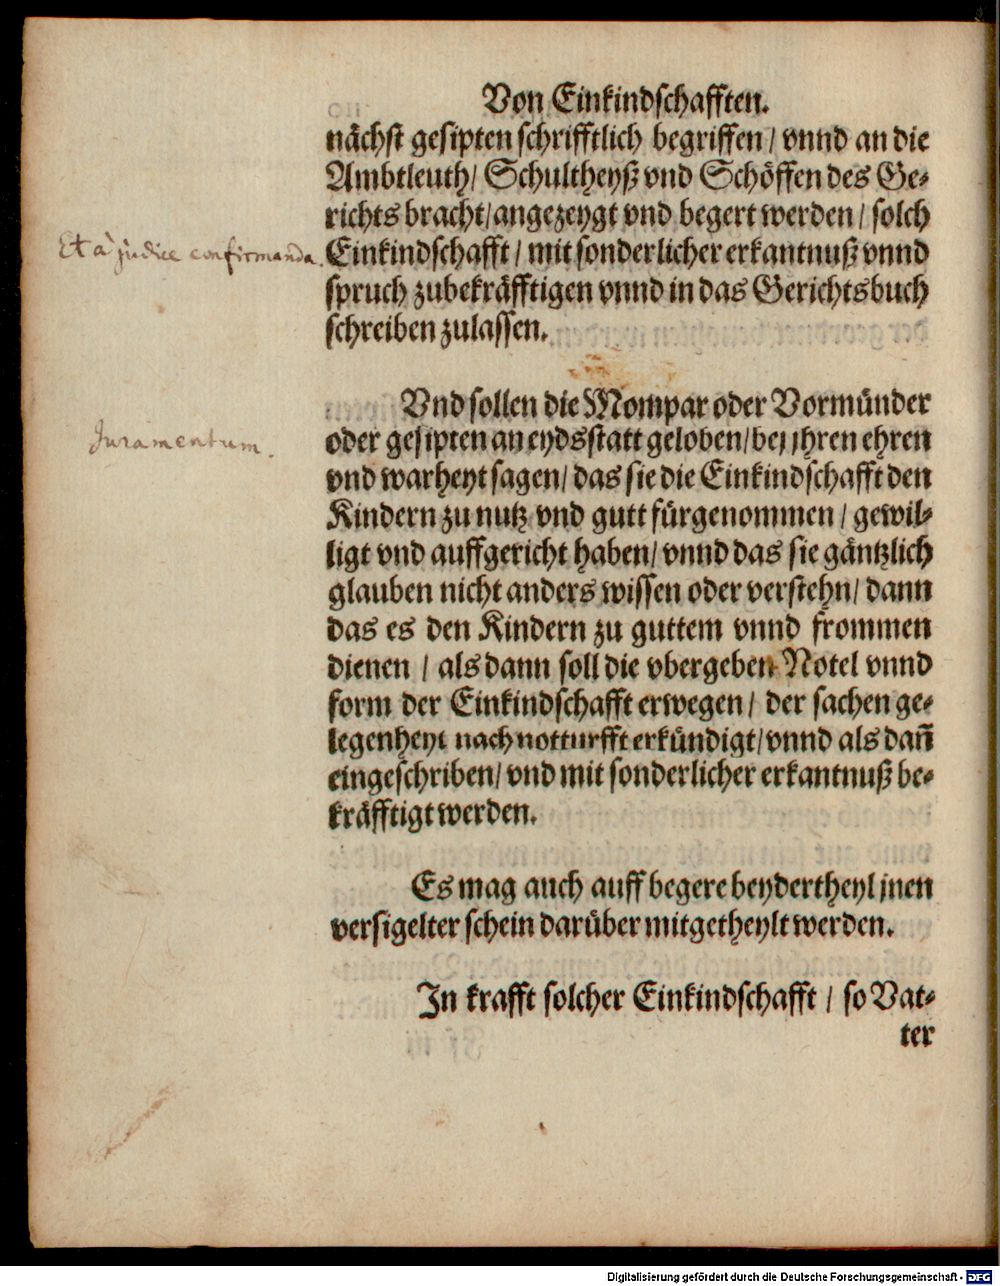 Von Einkindschafften.
nächst gesipten schrifftlich begriffen / vnnd an die
Ambtleuth / Schultheyß vnd Schöffen des Ge-
richts bracht / angezeygt vnd begert werden / solch
Et à judice confirmanda.
Einkindschafft / mit sonderlicher erkantnuß vnnd
spruch zubekräfftigen vnnd in das Gerichtsbuch
schreiben zulassen.
Vnd sollen die Mompar oder Vormünder
Juramentum.
oder gesipten an eydsstatt geloben / bej jhren ehren
vnd warheyt sagen / das sie die Einkindschafft den
Kindern zu nutz vnd gutt fürgenommen / gewil-
ligt vnd auffgericht haben / vnnd das sie gäntzlich
glauben nicht anders wissen oder verstehn / dann
das es den Kindern zu guttem vnnd frommen
dienen / als dann soll die vbergeben Notel vnnd
form der Einkindschafft erwegen / der sachen ge-
legenheyt nach notturfft erkündigt / vnnd als dañ
eingeschriben / vnd mit sonderlicher erkantnuß be-
kräfftigt werden.
Es mag auch auff begere beydertheyl jnen
versigelter schein darüber mitgetheylt werden.
In krafft solcher Einkindschafft / so Vat-
ter
Digitalisierung gefördert durch die Deutsche Forschungsgemeinschaft - DFG